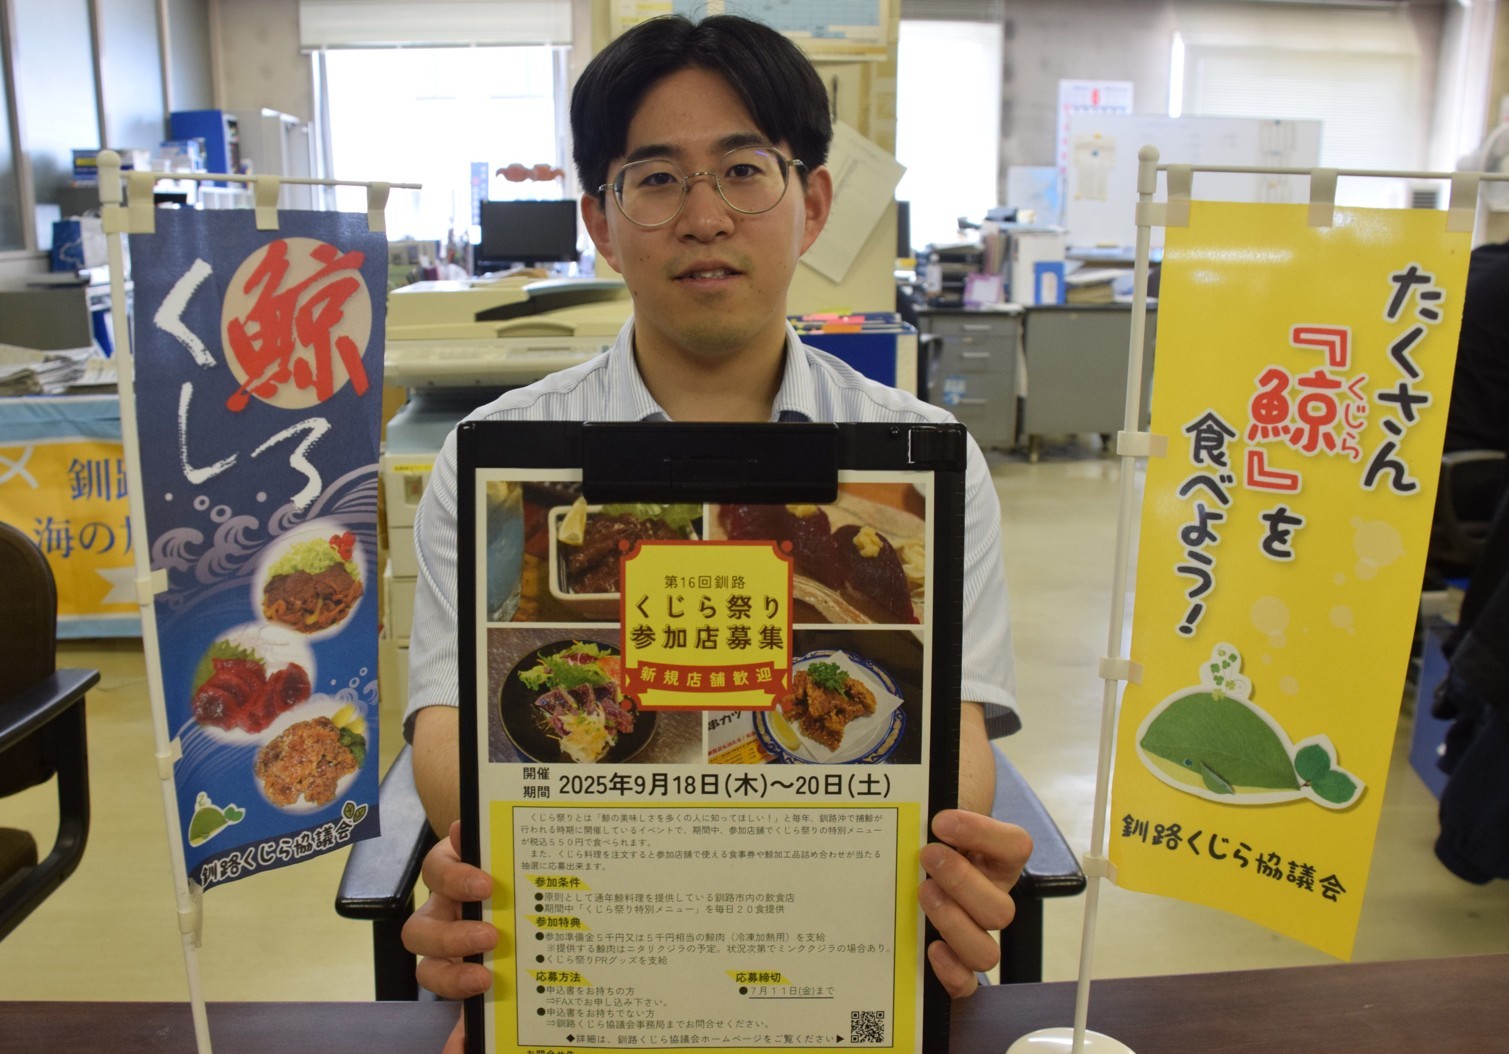 くしろ
鯨
釧路くじら協議会
釧路
海の
第16回釧路
くじら祭り
参加店募集
新規店舗歓迎
串カツ
開催
期間
2025年9月18日(木)~20日(土)
くじら祭りとは「鯨の美味しさを多くの人に知ってほしい!」と毎年、釧路沖で捕鯨が
行われる時期に開催しているイベントで、期間中、参加店舗でくじら祭りの特別メニュー
が税込550円で食べられます。
また、くじら料理を注文すると参加店舗で使える食事券や鯨加工品詰め合わせが当たる
抽選に応募出来ます。
参加条件
●原則として通年鯨料理を提供している釧路市内の飲食店
●期間中「くじら祭り特別メニュー」を毎日20食提供
参加特典
●参加準備金5千円又は5千円相当の鯨肉(冷凍加熱用)を支給
※提供する鯨肉はニタリクジラの予定。状況次第でミンククジラの場合あり。
●くじら祭りPRグッズを支給
応募方法
●申込書をお持ちの方
⇒FAXでお申し込み下さい。
●申込書をお持ちでない方
⇒釧路くじら協議会事務局までお問合せください。
応募締切
●7月11日(金)まで
◆詳細は、釧路くじら協議会ホームページをご覧ください▶
たくさん
『鯨』を
くじら
食べよう!
釧路くじら協議会